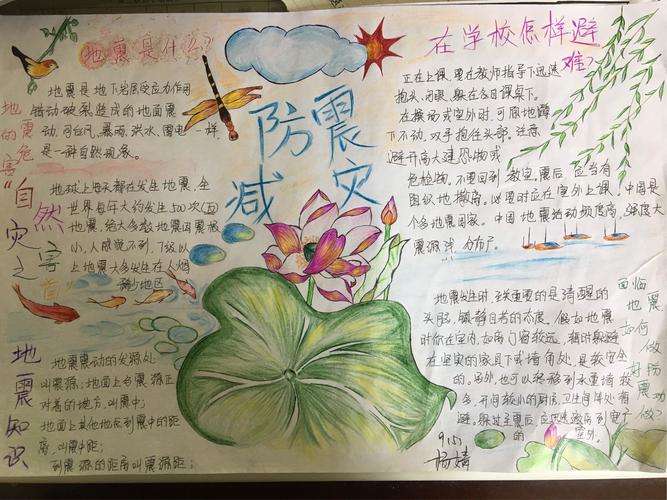 地震是什么?
地震是地下岩层受应力作用
错动破裂造成的地面震
动,同台风、暴雨、洪水、雷电一样,
是一种自然现象。
地震的危害"自然灾害之首"
地球上每天都在发生地震,全
世界每年大约发生500次(五)
地震,绝大多数地震因震级
小,人感觉不到,7级以
上地震大多发生在人烟
稀少地区
地震知识
地震震动的发源处
叫震源;地面上与震源正
对着的地方,叫震中;
地面上其他地点到震中的距
离,叫震中距;
到震源的距离叫震源距;
防震
减灾
在学校怎样避
难?
正在上课,要在教师指导下迅速
抱头、闭眼、躲在各自课桌下。
在操场或室外时,可原地蹲
下不动,双手抱住头部。注意
避开高大建筑物或
危险物。不要回到教室,震后应当有
组织地撤离。必要时应在室外上课。中国是
个多地震国家。中国地震活动频度高、强度大
震源浅、分布广。
面临地震,如何做好防震功做?
地震发生时,至关重要的是清醒的
头脑,镇静自若的态度。假如地震
时你在室内,如离门窗较远,
在坚实的家具下或墙角处,是较安全
的。另外也可以转移到承重墙较
多,开间较小的厨房、卫生间等处有
避。躲过主震后应迅速撤离到
的室外。
杨婧